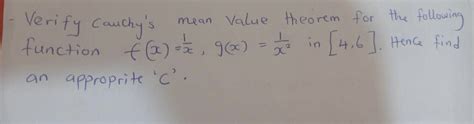 - Verify Cauchy's mean value theorem for the following
function f(x) = 1/x, g(x) = 1/x² in [4,6]. Hence find
an approprite 'c'.